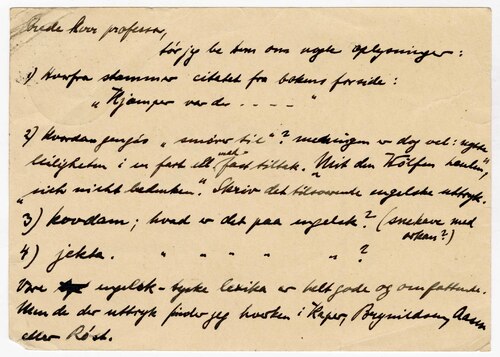 Ærede herr professor,
tör jeg be dem om nogle oplysninger:
1) Hvorfra stammer citatet fra bokens forside:
„Hjamper var der - - - - "
2) Hvordan „smörr til"? meningen er dog vel:
leiligheten i en fart ell med fast tiltak. „Mit den Wölfen heulen",
„sich nicht bedenken". Skriv det tilsvarende engelske uttryk.
3) kovdam; hvad er det paa engelsk? (snekeve med
orkan?)
4) jekta. " " " " " ?
Vore engelsk-tyske lexika er helt gode og omfattende.
Men de der uttryk finder jeg hverken i Kaper, Brynildsen,
eller Röst.